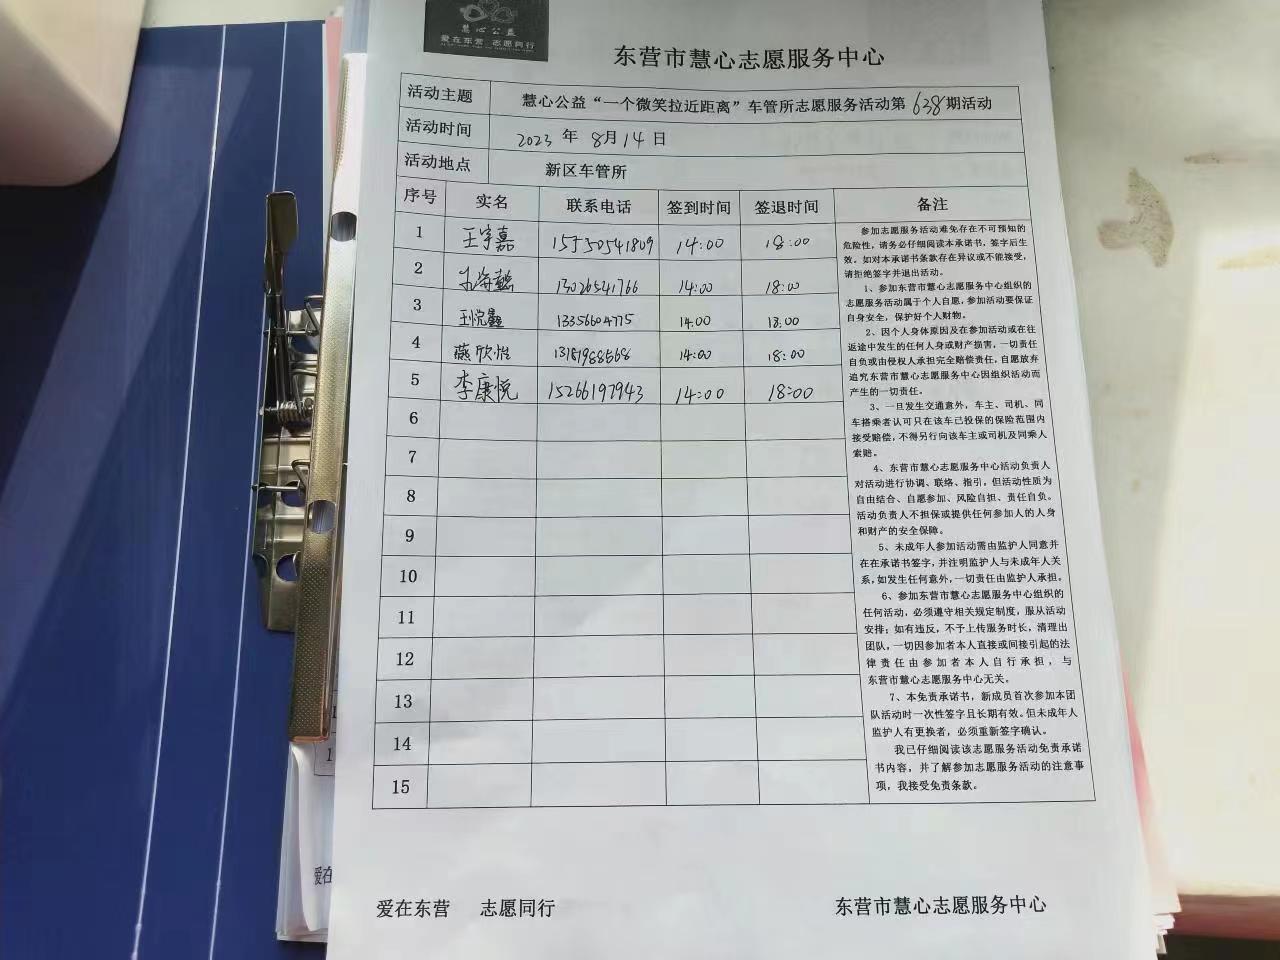 慧心公益
爱在东营 志愿同行
东营市慧心志愿服务中心
活动主题 慧心公益“一个微笑拉近距离”车管所志愿服务活动第638期活动
活动时间 2023 年 8月14日
活动地点 新区车管所
序号 实名 联系电话 签到时间 签退时间 备注
1 王宇嘉 15550541809 14:00 18:00
2 13026541766 14:00 18:00
3 13356604775 14:00 18:00
4 燕欣怡 14:00 18:00
5 李康悦 15266197943 14:00 18:00
6
7
8
9
10
11
12
13
14
15
参加志愿服务活动难免存在不可预知的
危险性，请务必仔细阅读本承诺书，签字后生
效。如对本承诺书条款存在异议或不能接受，
请拒绝签字并退出活动。
1、参加东营市慧心志愿服务中心组织的
志愿服务活动属于个人自愿，参加活动要保证
自身安全，保护好个人财物。
2、因个人身体原因及在参加活动或在往
返途中发生的任何人身或财产损害，一切责任
自负或由侵权人承担完全赔偿责任，自愿放弃
追究东营市慧心志愿服务中心因组织活动而
产生的一切责任。
3、一旦发生交通意外，车主、司机、同
车搭乘者认可只在该车已投保的保险范围内
接受赔偿，不得另行向该车主或司机及同乘人
索赔。
4、东营市慧心志愿服务中心活动负责人
对活动进行协调、联络、指引，但活动性质为
自由结合、自愿参加、风险自担、责任自负。
活动负责人不担保或提供任何参加人的人身
和财产的安全保障。
5、未成年人参加活动需由监护人同意并
在在承诺书签字，并注明监护人与未成年人关
系，如发生任何意外，一切责任由监护人承担。
6、参加东营市慧心志愿服务中心组织的
任何活动，必须遵守相关规定制度，服从活动
安排；如有违反，不予上传服务时长，清理出
团队，一切因参加者本人直接或间接引起的法
律责任由参加者本人自行承担，与
东营市慧心志愿服务中心无关。
7、本免责承诺书，新成员首次参加本团
队活动时一次性签字且长期有效。但未成年人
监护人有更换者，必须重新签字确认。
我已仔细阅读该志愿服务活动免责承诺
书内容，并了解参加志愿服务活动的注意事
项，我接受免责条款。
爱在东营 志愿同行 东营市慧心志愿服务中心